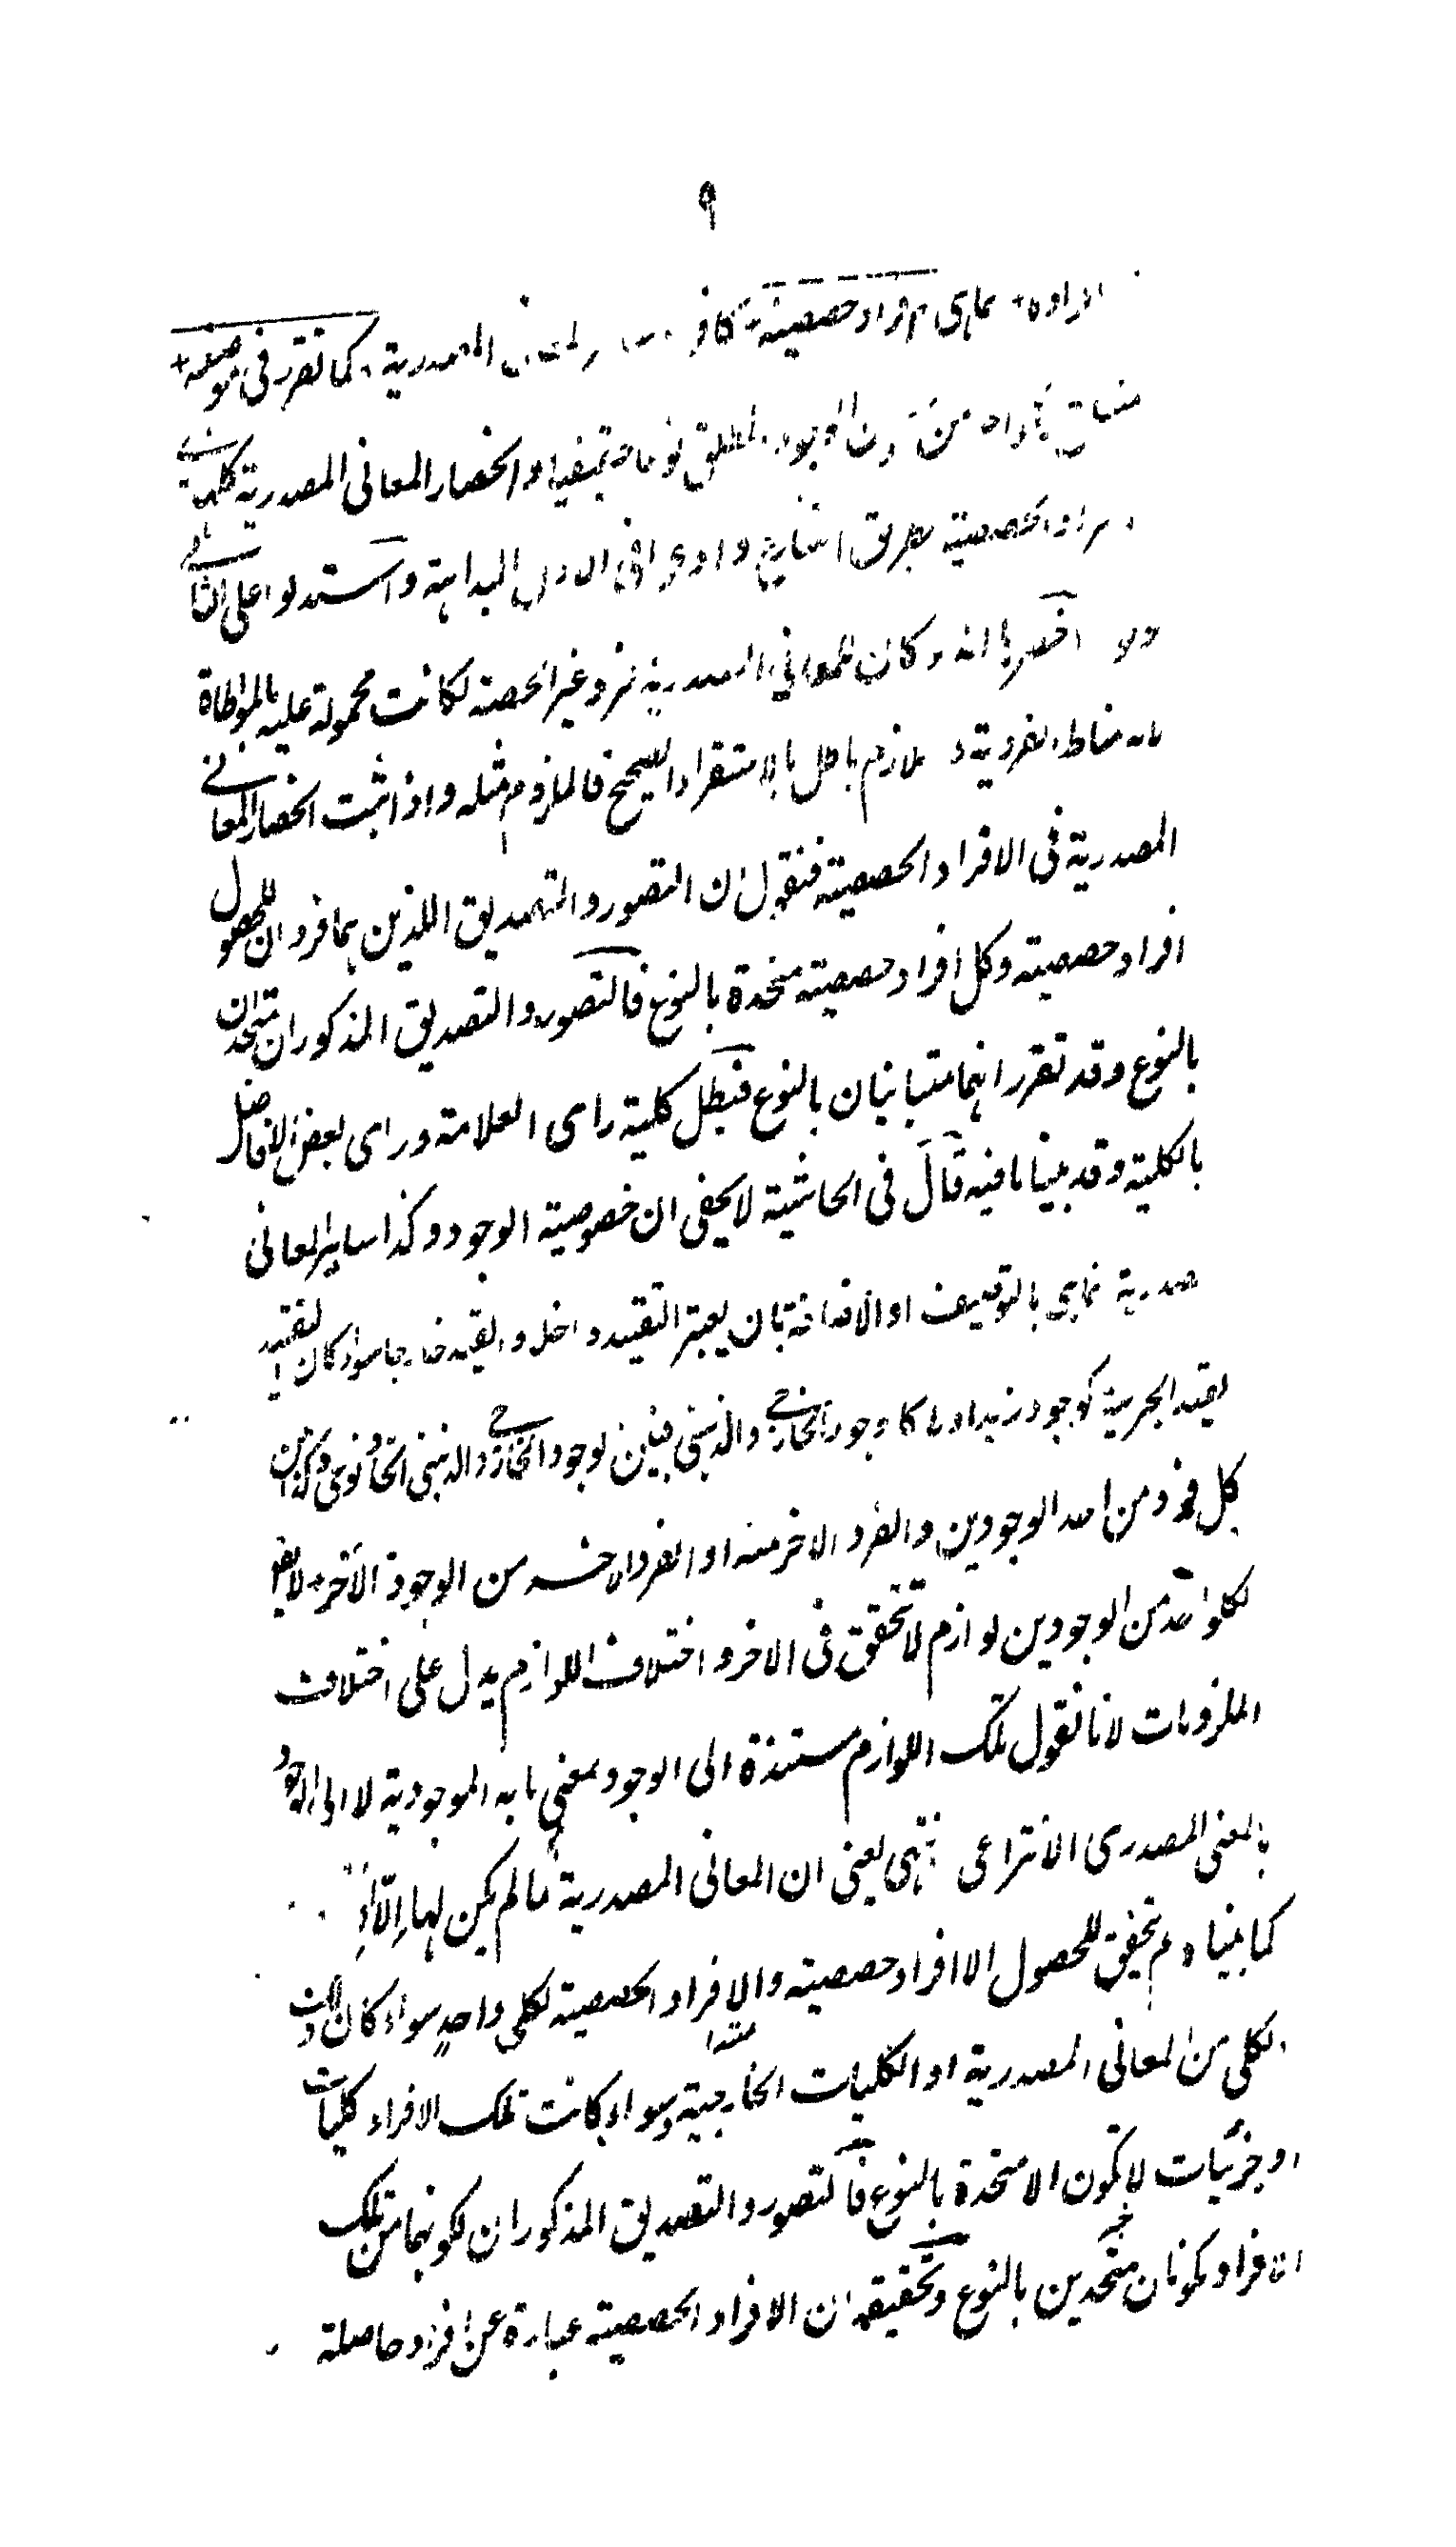 ٩
افراده + انما هي افراد حصصية + كافراد سائر المعاني المصدرية، كما تقرر فى موضعه +
من الوجود المطلق نوعا حقيقيا وانحصار المعانى المصدرية كلها فى
الافراد الحصصية بطريق وادعوا فى الاول البداهة واستدلوا على الثانى
اخصرها انه لو كان للمعانى المصدرية فرد غير الحصة لكانت محمولة عليه بالمواطاة
لانه مناط الفردية واللازم باطل بالاستقراء الصحيح فالملزوم مثله واذا ثبت انحصار المعانى
المصدرية فى الافراد الحصصية فنقول ان التصور والتصديق اللذين هما فردان للحصول
افراد حصصية وكل افراد حصصية متحدة بالنوع فالتصور والتصديق المذكوران متحدان
بالنوع وقد تقرر انهما متبانيان بالنوع فبطل كلية راى العلامة وراى بعض الافاضل
بالكلية وقد بينا مافيه قال فى الحاشية لا يخفى ان خصوصية الوجود وكذا ساير المعانى
المصدرية انما هى بالتوصيف او الاضافة بان يعتبر التقييد داخلا والقيد خارجا سواء كان التقييد
بقيد الجزئية كوجود زيد اولا كالوجود الخارجى والذهنى فبين الوجود الخارجى والذهنى اتحاد نوعى وكذا بين
كل فرد من احد الوجودين والفرد الاخر منه او الفرد الاخر من الوجود الاخر + لا يقال
لكل واحد من الوجودين لوازم لا تتحقق فى الاخر واختلاف اللوازم يدل على اختلاف
الملزومات لانا نقول تلك اللوازم مستندة الى الوجود بمعنى ما به الموجودية لا الى الوجود
بالمعنى المصدرى الانتزاعى انتهى يعنى ان المعانى المصدرية لما لم يكن لها الا
كما بينا ولم يتحقق للحصول الا افراد حصصية والافراد الحصصية لكلى واحد سواء كان ذلك
الكلى من المعانى المصدرية او الكليات الخارجية وسواء كانت تلك الافراد كليات
او جزئيات لا تكون الا متحدة بالنوع فالتصور والتصديق المذكوران لكونهما من تلك
الافراد يكونان متحدين بالنوع وتحقيقه ان الافراد الحصصية عبارة عن افراد حاصلة